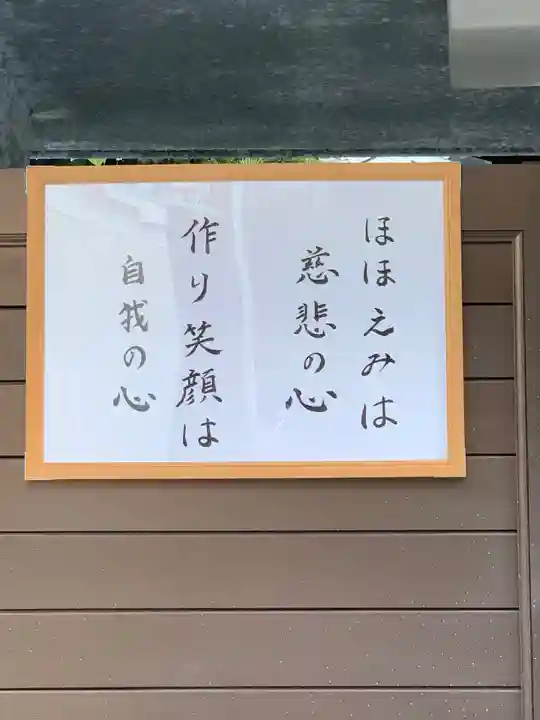 ほほえみは
慈悲の心
作り笑顔は
自我の心